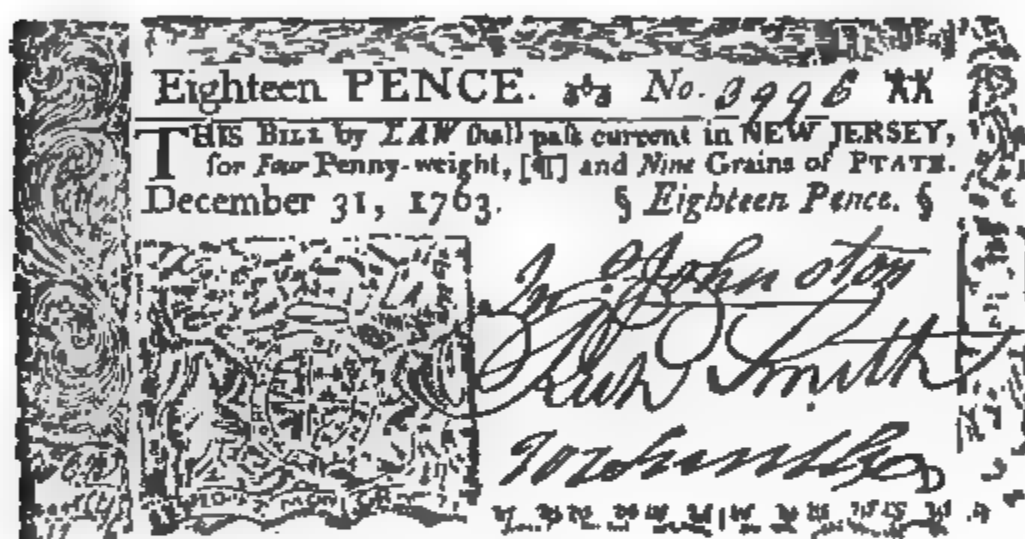 Eighteen PENCE. No. 3996
THIS BILL by LAW shall pass current in NEW JERSEY,
for Four Penny-weight, [¶] and Nine Grains of PLATE.
December 31, 1763. § Eighteen Pence. §
Johnston
Smith